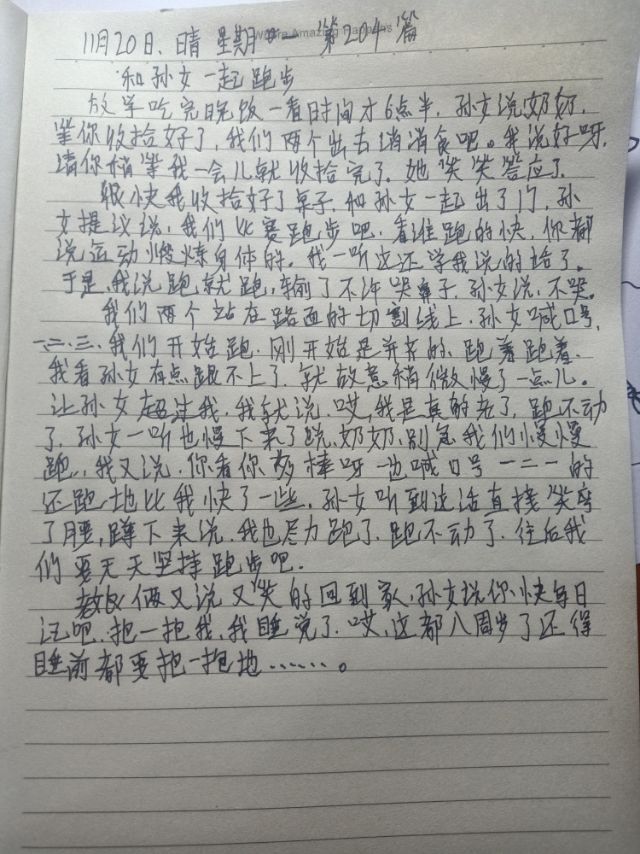 11月20日、晴 星期一 第204篇
和孙女一起跑步
放学吃完晚饭一看时间才6点半，孙女说奶奶，
等你收拾好了，我们两个出去消消食吧。我说好呀，
请你稍等我一会儿就收拾完了，她笑笑答应了。
很快我收拾好了桌子，和孙女一起出了门，孙
女提议说，我们比赛跑步吧，看谁跑的快，你都
说运动煅炼身体的。我一听这还学我说的话了。
于是，我说跑就跑，输了不许哭鼻子，孙女说，不哭。
我们两个站在路面的切割线上，孙女喊口号，
一、二、三、我们开始跑，刚开始是并齐的，跑着跑着，
我看孙女有点跟不上了，就故意稍微慢了一点儿。
让孙女超过我，我就说，哎，我是真的老了，跑不动
了，孙女一听也慢下来了说，奶奶，别急我们慢慢
跑，我又说，你看你多棒呀一边喊口号一二一的
还跑地比我快了一些，孙女听到这话直接笑弯
了腰，蹲下来说，我也尽力跑了，跑不动了，往后我
们要天天坚持跑步吧。
俩又说又笑的回到家，孙女说你快每日
记吧，抱一抱我，我睡说了，哎，这都八周岁了还得
睡前都要抱一抱地……。